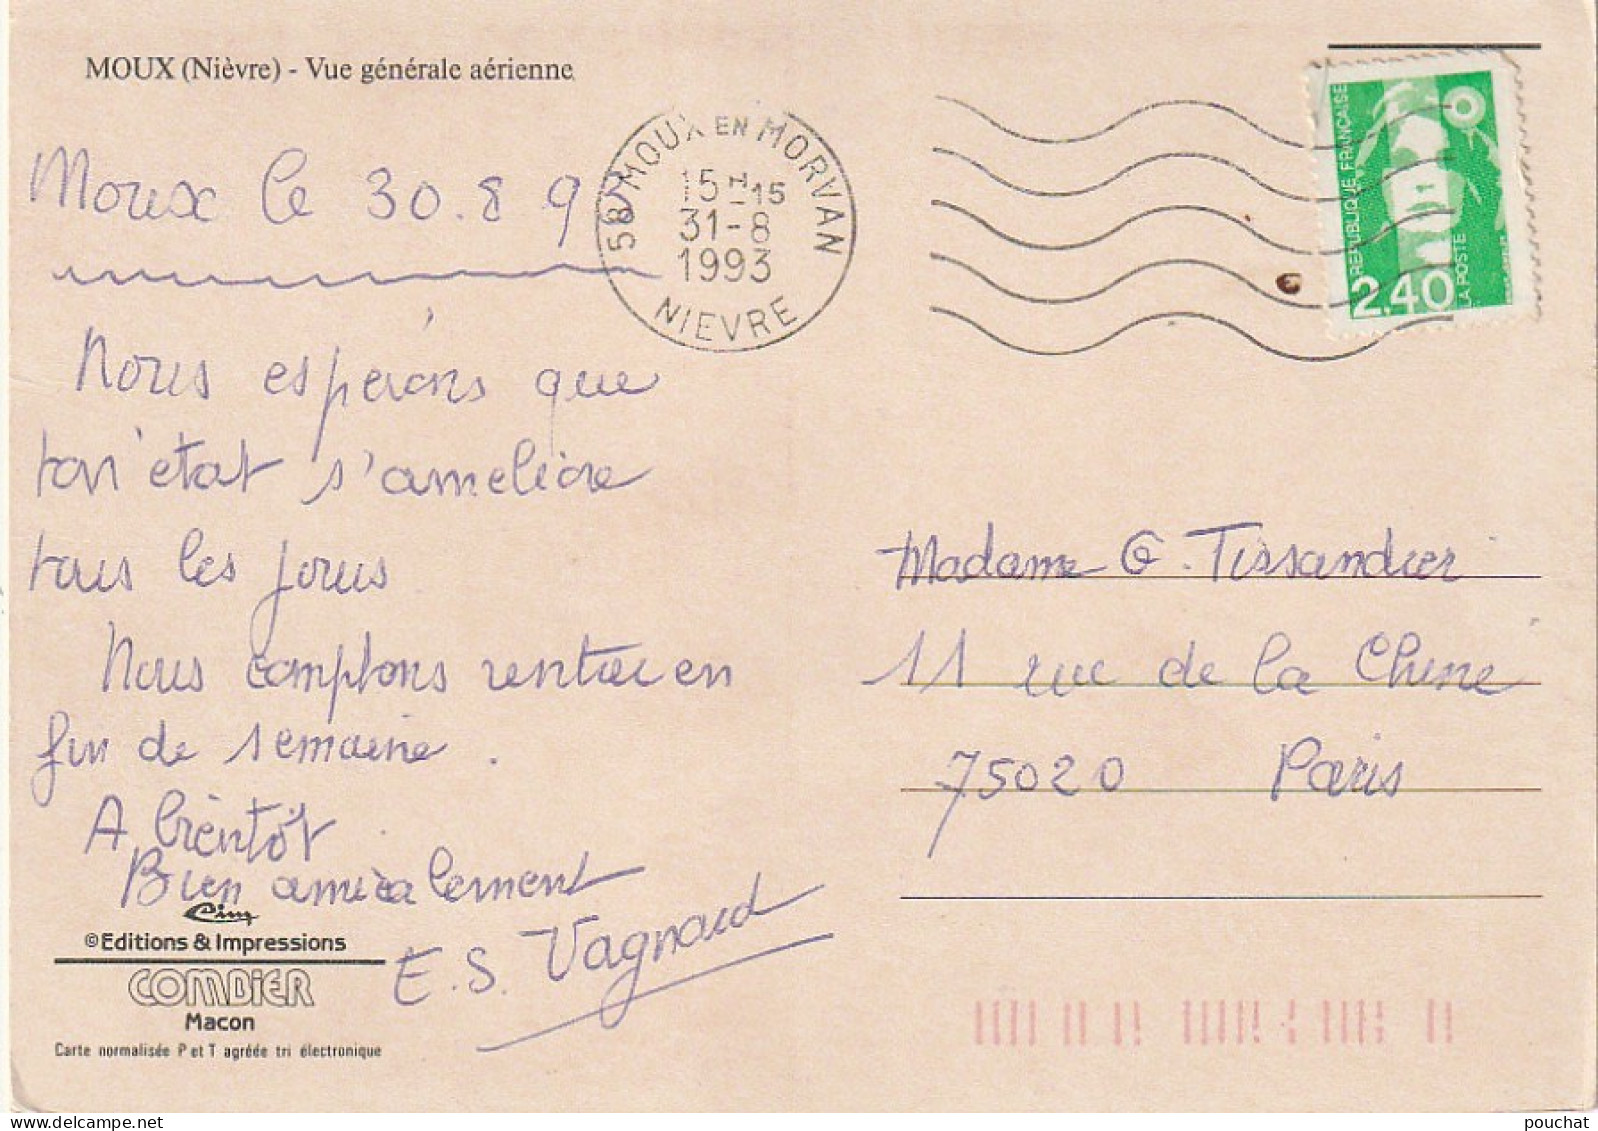 MOUX (Nièvre) - Vue générale aérienne
Moux le 30.8 93
58 MOUX EN MORVAN
15H15
31-8
1993
NIEVRE
REPUBLIQUE FRANÇAISE
2,40
LA POSTE
Nous espérons que
ton état s'améliore
tous les jours
Nous comptons rentrer en
fin de semaine.
A bientôt
Bien amicalement
E.S. Vagnard
Madame G. Tissandier
11 rue de la Chine
75020 Paris
Cim
©Editions & Impressions
COMBIER
Macon
Carte normalisée P et T agréée tri électronique
delcampe.net
pouchat